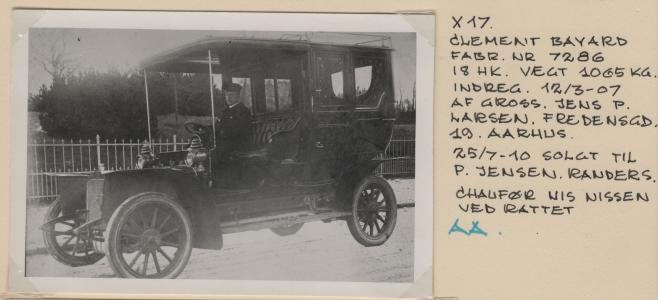 X 17.
CLEMENT BAYARD
FABR. NR 7286
18 HK. VEGT 1065 KG.
INDREG. 12/3-07
AF GROSS. JENS P.
LARSEN. FREDENSGD.
19. AARHUS.
25/7-10 SOLGT TIL
P. JENSEN. RANDERS.
CHAUFØR NIS NISSEN
VED RATTET
AA.